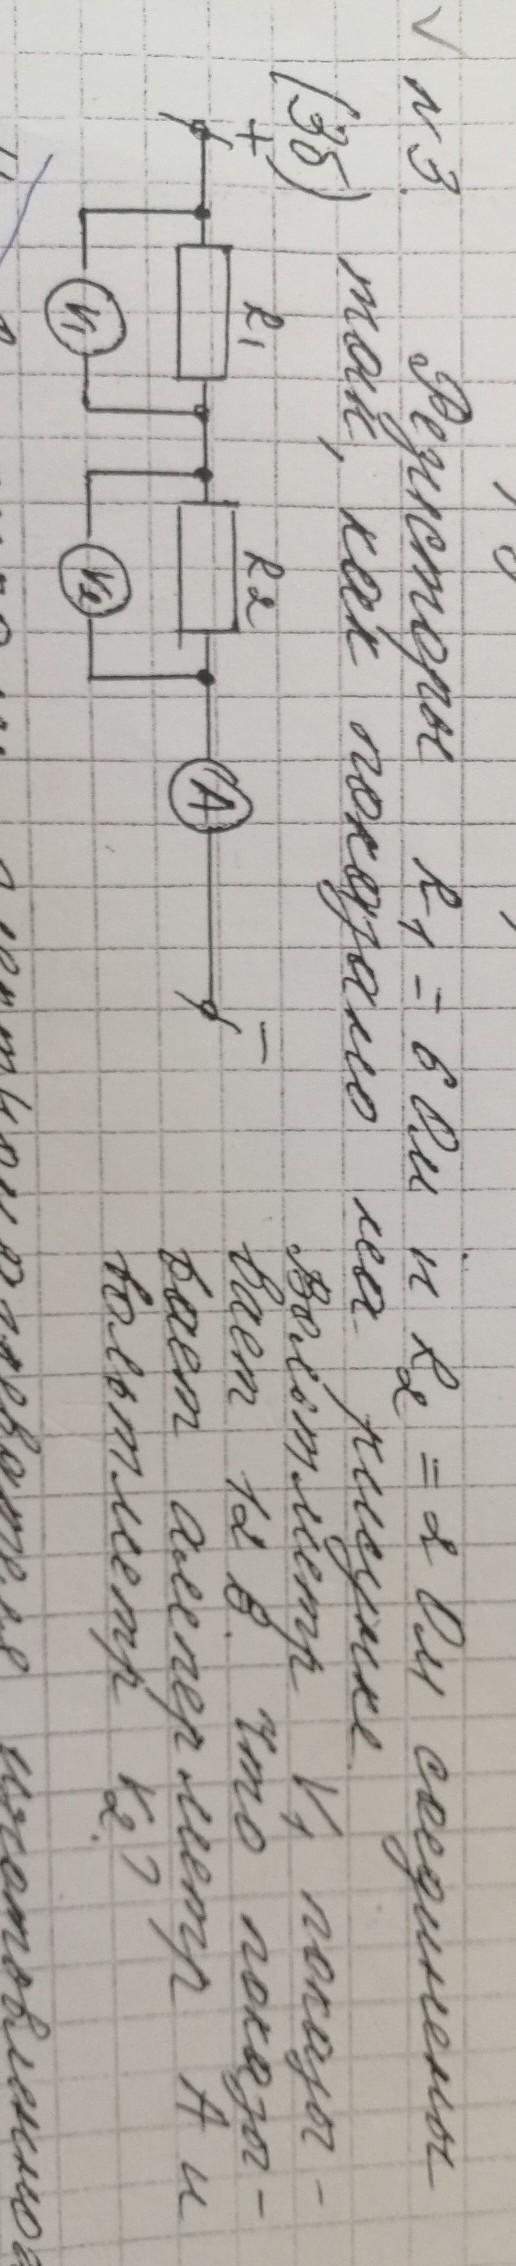 №3. Резисторы R₁ = 6 Ом и R₂ = 2 Ом соединены
(3б) так, как показано на рисунке.
Вольтметр V₁ показы-
вает 12 В. Что показы-
вает амперметр А и
вольтметр V₂?
+ R₁ R₂ −
V₁ V₂ A